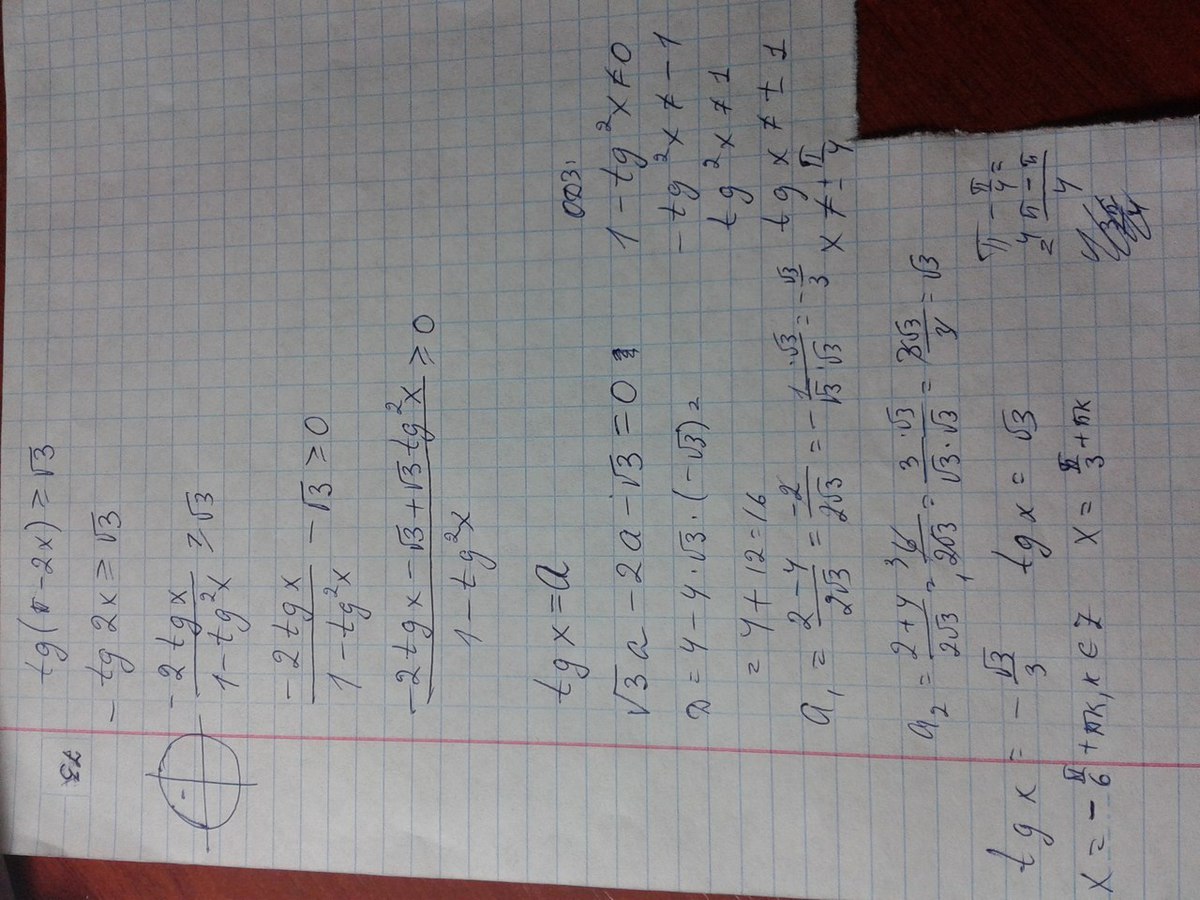 73
tg(π-2x) ≥ √3
- tg 2x ≥ √3
- 2 tg x / 1 - tg²x ≥ √3
- 2 tg x / 1 - tg²x - √3 ≥ 0
-2 tg x - √3 + √3 tg²x / 1 - tg²x ≥ 0
tg x = a
√3 a - 2a - √3 = 0
D = 4 - 4·√3·(-√3) =
= 4 + 12 = 16
a₁ = 2 - 4 / 2√3 = -2 / 2√3 = - 1·√3 / √3·√3 = - √3 / 3
a₂ = 2 + 4 / 2√3 = 6 / 2√3 = 3·√3 / √3·√3 = 3√3 / 3 = √3
tg x = - √3 / 3 tg x = √3
x = - π/6 + πk, k ∈ Z x = π/3 + πk
ОДЗ:
1 - tg²x ≠ 0
- tg²x ≠ - 1
tg²x ≠ 1
tg x ≠ ± 1
x ≠ ± π/4
π - π/4 =
= 4π - π / 4
3π/4